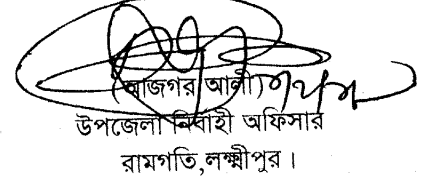 (আজগর আলী)
উপজেলা নির্বাহী অফিসার
রামগতি,লক্ষ্মীপুর।